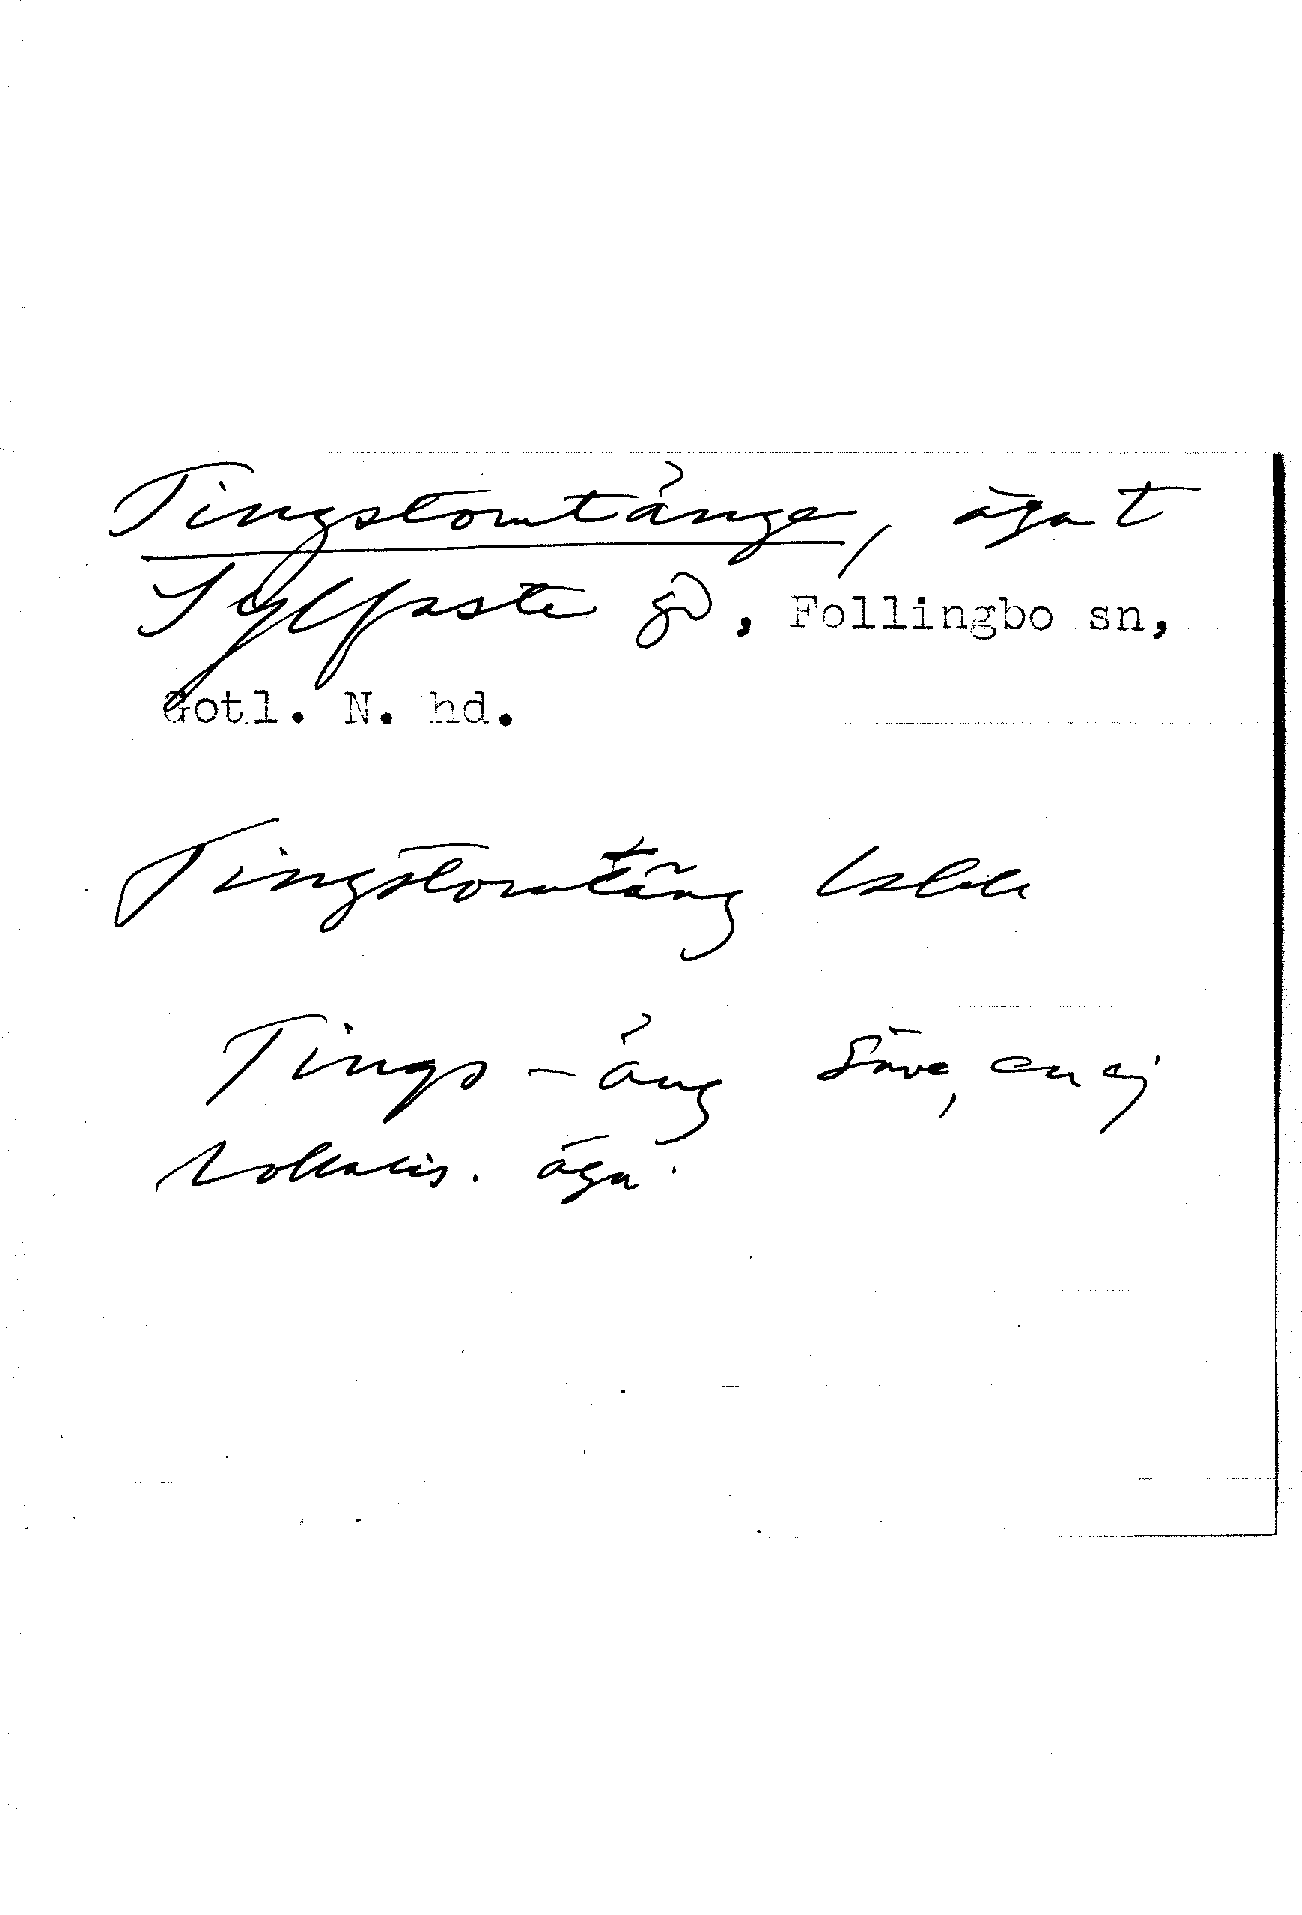 Tingstomtänge, äga t
Sylfaste gd, Follingbo sn,
Gotl. N. hd.
Tingstomtäng
Tings - äng Säve, en ej
lokalis. äga.